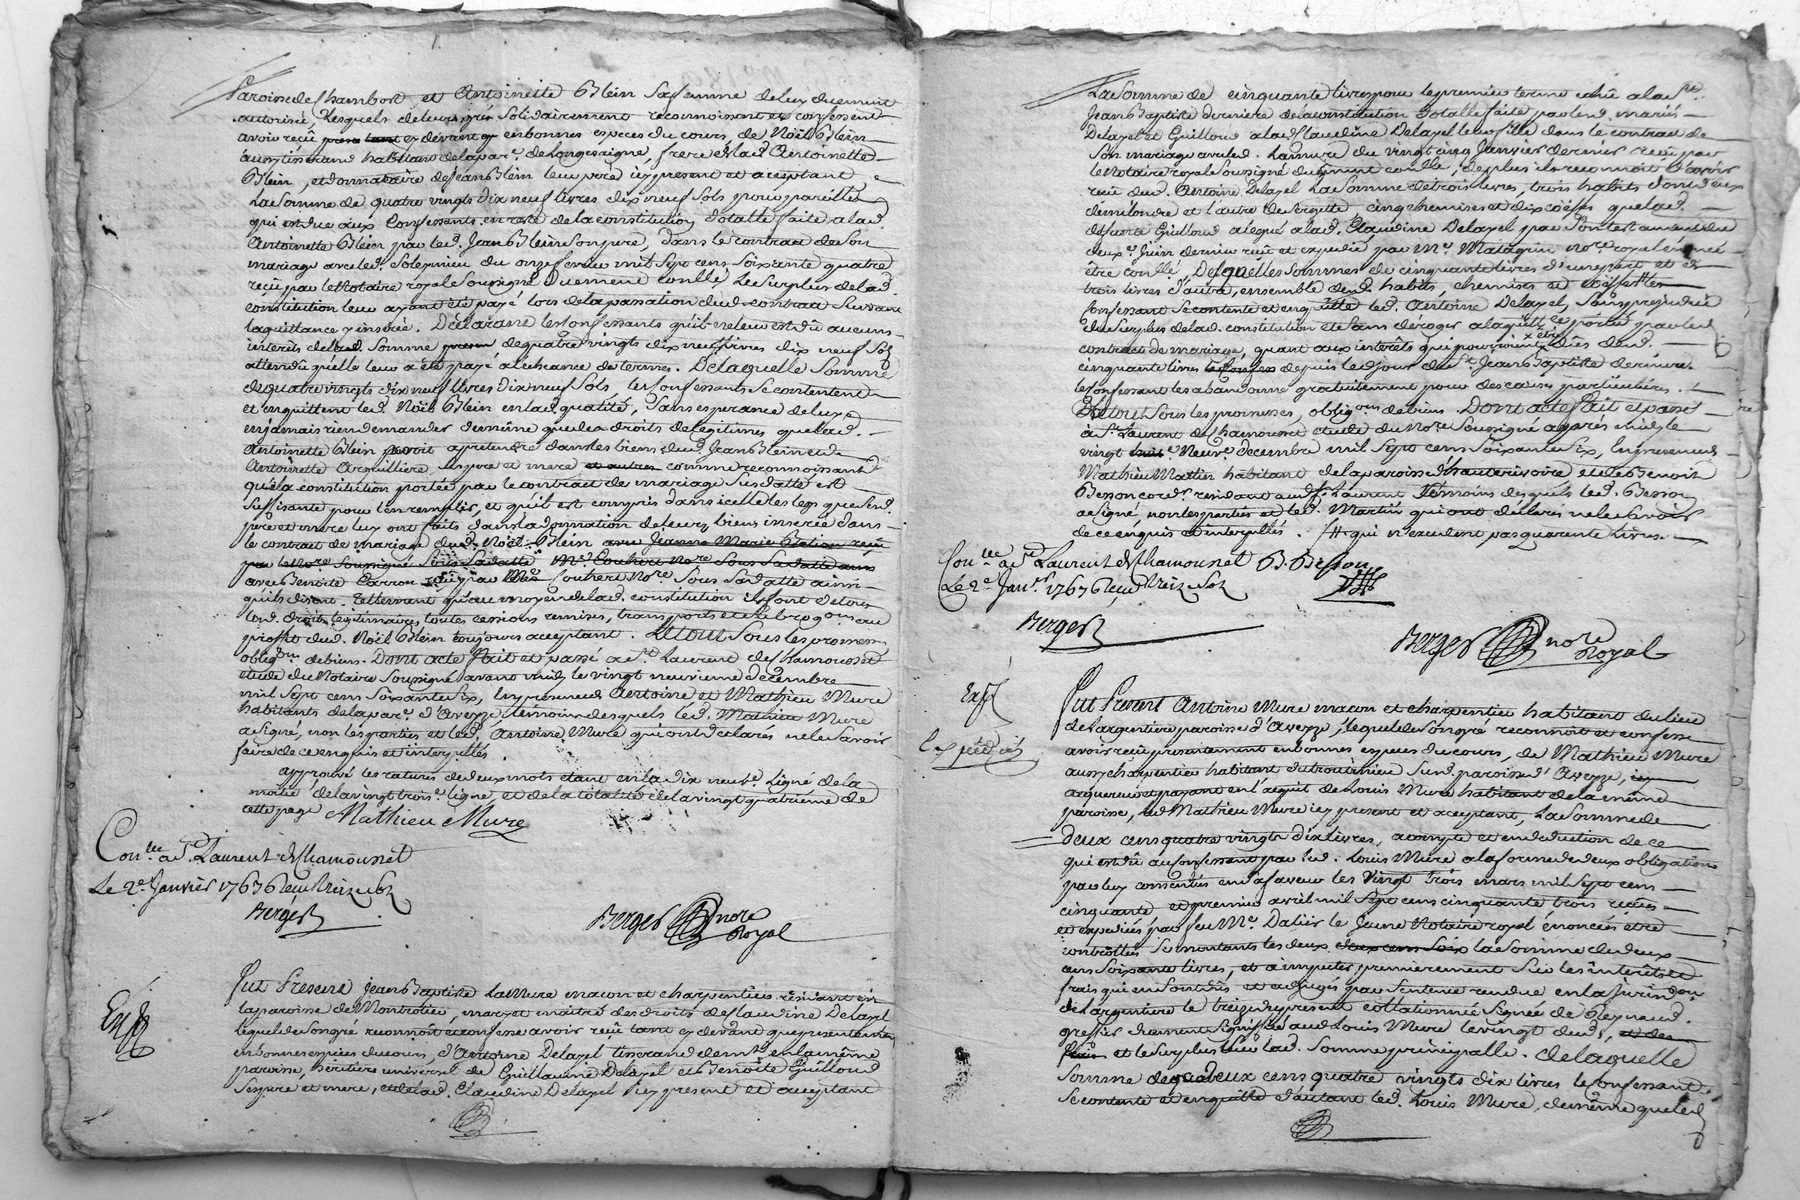 Paroisse de Chambost et Antoinette Blein sa femme de luy duement
autorisée, Lesquels de leur gré solidairement reconnoissent et confessent
avoir reçû cy devant en bonnes espèces du cours, de Noël Blein
aussy tisserand habitant de la par.e de Longessaigne, frere de lad. Antoinette
Blein, et donnataire de Jean Blein leur pere icy present et acceptant
La somme de quatre vingts dix neuf livres dix neuf sols pour pareille
qui est due aux Confessants en reste de la constitution dotalle faite a lad.
Antoinette Blein par led. Jean Blein son pere, dans le contract de son
mariage avec led. Solepmieu du onze fevrier mil sept cens soixante quatre
reçu par le Notaire royal soussigné duement conllé, Le surplus de lad.
constitution leur ayant été payé lors de la passation dud. contract suivant
la quittance y inserée. Déclarant les confessants qu'il ne leur est dû aucuns
interets de lad. somme de quatre vingts dix neuf livres dix neuf sols
attendu qu'elle leur a été payé a l'echeance des termes. De laquelle somme
de quatre vingts dix neuf livres dix neuf sols, les confessants se contentent
et enquittent led. Noël Blein en lad. qualité, sans esperance de luy
en jamais rien demander de même que des droits de legitimes que lad.
Antoinette Blein avoit a pretendre dans les biens dud. Jean Blein et de
Antoinette Arguilliere ses pere et mere et autres comme reconnoissant
que la constitution portée par le contract de mariage susdatté est
suffisante pour l'en remplir, et qu'il est compris dans icelle les legs que sesd.
pere et mere luy ont faits dans la donnation de leurs biens inserée dans
le contrat de mariage dud. Noël Blein avec Jeanne Marie Station reçu
par le No.re soussigné sous sa datte M.e Couhert No.re sous sa datte ainsi
avec Benoite Carron reçu par M.e Couhert No.re sous sa datte ainsi
qu'ils disent. Tellement qu'au moyen de lad. constitution ils font de tous
lesd. droits legitimaires toutes cessions remises, transports et subrogations au
proffit dud. Noël Blein toujours acceptant. Le tout sous les promesses
oblig.ons de biens. Dont acte fait et passé a S.t Laurent de Chamousset
etude du Notaire soussigné avant midy le vingt neuvieme decembre
mil sept cens soixante six, En presence d'Antoine et Mathieu Mure
habitants de la par.e d'Aveyze, temoins desquels led. Mathieu Mure
a signé, non les parties et led. Antoine Mure qui ont declarés ne le savoir
faire de ce enquis et interpellés
approuvé les ratures de deux mots étant en la dix neuv.e ligne de la
moitié de la vingt trois.e ligne et de la totalité de la vingt quatrieme de
cette page Mathieu Mure
Con.lle a S.t Laurent de Chamousset
Le 2.e Janvier 1767 reçu treize sols
Berger
Berger nore
Royal
Exp.
Fut Present Jean Baptiste Lamure macon et charpentier residant en
la paroisse de Montrotier, mary et maître des droits de Claudine Delayel
lequel de son gré reconnoit et confesse avoir reçu tant cy devant que presentement
en bonnes especes du cours, d'Antoine Delayel tisserand demt en la même
paroisse, héritier universel de Guillaume Delayel et Benoîte Guilloud
ses pere et mere, et de lad. Claudine Delayel icy present et acceptant
La somme de cinquante livres pour le premier terme echu a la S.t
Jean Baptiste derniere de la constitution dotalle faite par led. mariés
Delayel et Guilloud a lad. Claudine Delayel leur fille dans le contract de
son mariage avec led. Lamure du vingt cinq Janvier dernier reçu par
le Notaire royal soussigné duement conllé, de plus il reconnoit d'avoir
reçu dud. Antoine Delayel La somme de trois livres, trois habits dont deux
demi londre et l'autre de sergette cinq chemises et dix coeffes que lad.
defunte Guilloud a legué a lad. Claudine Delayel par son testament du
deux.e Juin dernier reçu et expedié par M.e Matagrin no.re royal enoncé
être conllé, Desquelles sommes de cinquante livres d'une part et de
trois livres d'autre, ensemble desd. habits, chemises et coeffes le
confessant se contente et enquitte led. Antoine Delayel, sans prejudice
du surplus de lad. constitution et sans déroger a la quittce portée par led.
contract de mariage, quant aux interêts qui pourroient être dûs desd.
cinquante livres depuis led. jour de S.t Jean Baptiste derniere
le confessant les abandonne gratuitement pour des causes particulieres.
Le tout sous les promesses, oblig.ons de biens. Dont acte fait et passé
à S.t Laurent de Chamousset etude du No.re soussigné apprès midy le
vingt neuv.e decembre mil sept cens soixante six, En presence de
Mathieu Martin habitant de la paroisse d'hauterivoire et de Benoit
Besson cord.r residant aud. S.t Laurent Témoins desquels led. Besson
a signé, non les parties et led. Martin qui ont declarés ne le savoir
de ce enquis et interpellés. # qui n'excedent pas quarente livres.
Con.lle a S.t Laurent de Chamousset B. Besson
Le 2.e Jan.er 1767 reçu treize sols
Berger
Berger nore
Royal
Exp.
Expédié
Fut Present Antoine Mure macon et charpentier habitant du lieu
de Largentiere paroisse d'Aveyze, lequel de son gré reconnoit et confesse
avoir reçu presentement en bonnes especes du cours, de Mathieu Mure
aussy charpentier habitant du sud. paroisse d'Aveyze, icy
acquereur et payant en l'acquit de Louis Mure habitant de la même
paroisse, led. Mathieu Mure icy present et acceptant, La somme de
Deux cens quatre vingts dix livres, a compte et en deduction de ce
qui est dû au confessant par led. Louis Mure a la forme de deux obligations
par luy consenties en sa faveur les vingt trois mars mil sept cens
cinquante et premier avril mil sept cens cinquante trois reçues
et expediées par feu M.e Dalier le Jeune Notaire royal énoncées être
controllées se montants les deux la somme de deux
cens soixante livres, et a imputer premierement sur les interêts et
frais qui en sont dûs et adjugés par sentence rendue en la jurid.on
de Largentiere le treize du present collationné signée de Reynaud
greffier duement signiffiée aud. Louis Mure le vingt dud., et des
frais et le surplus sur lad. somme principalle. De laquelle
somme de deux cens quatre vingts dix livres le confessant
se contente et enquitte d'autant led. Louis Mure, de même que led.